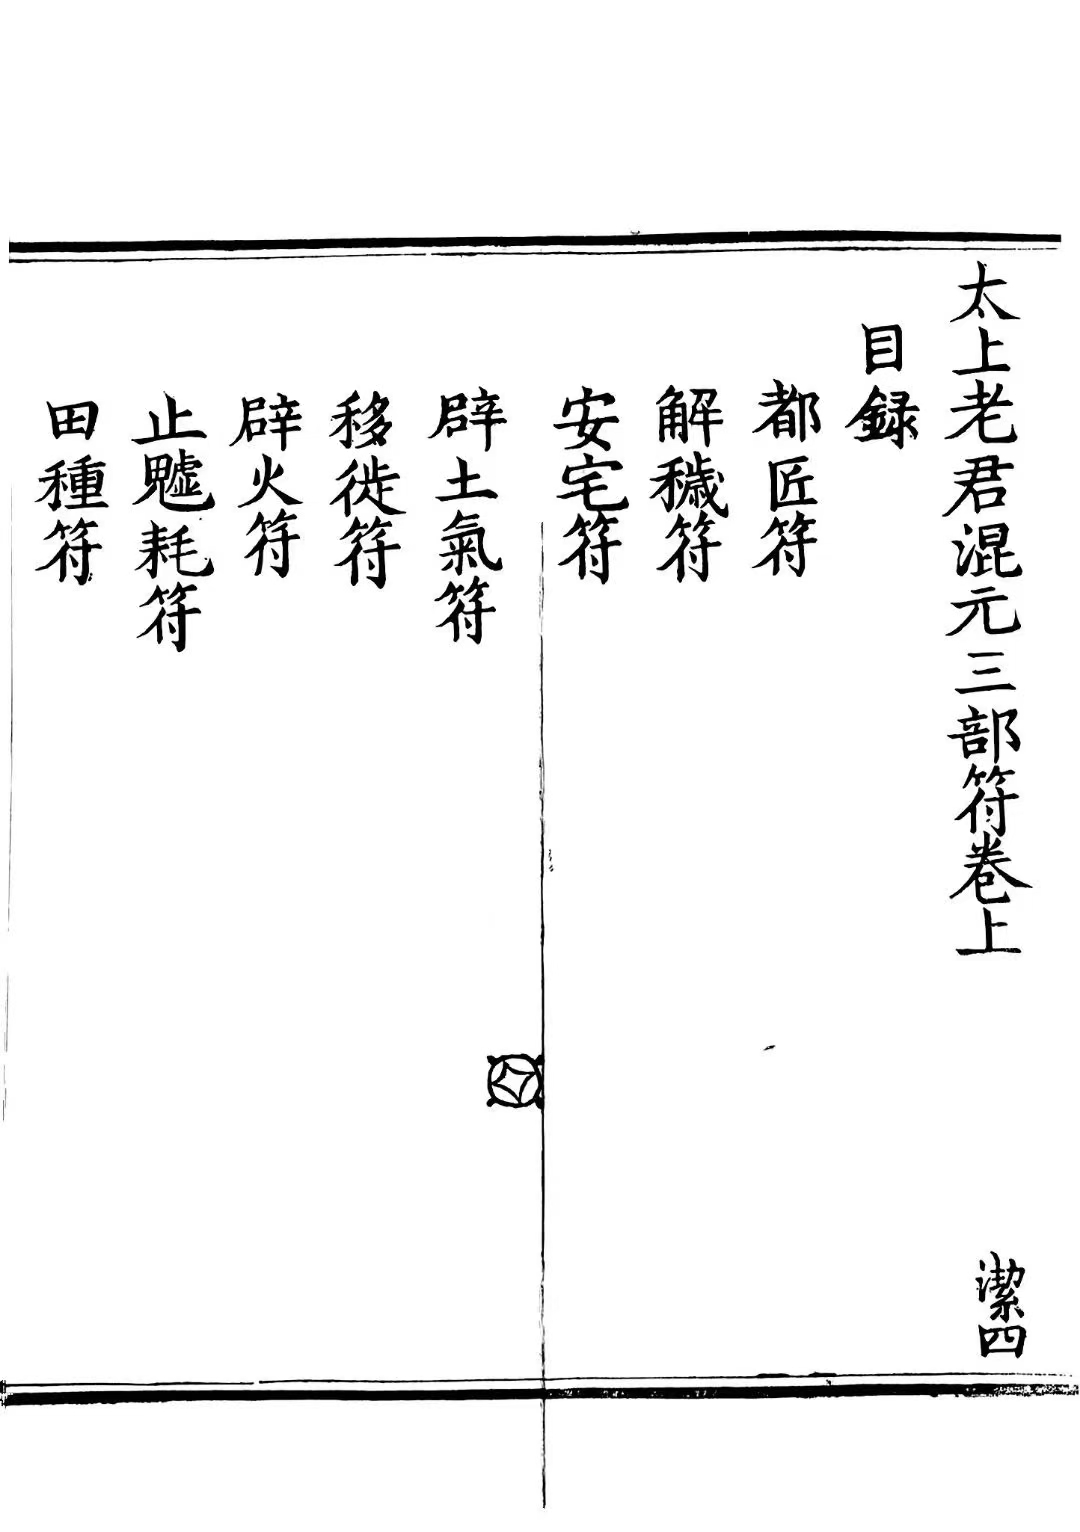 太上老君混元三部符卷上
潔四
目録
都匠符
解穢符
安宅符
辟土氣符
移徙符
辟火符
止魖耗符
田種符